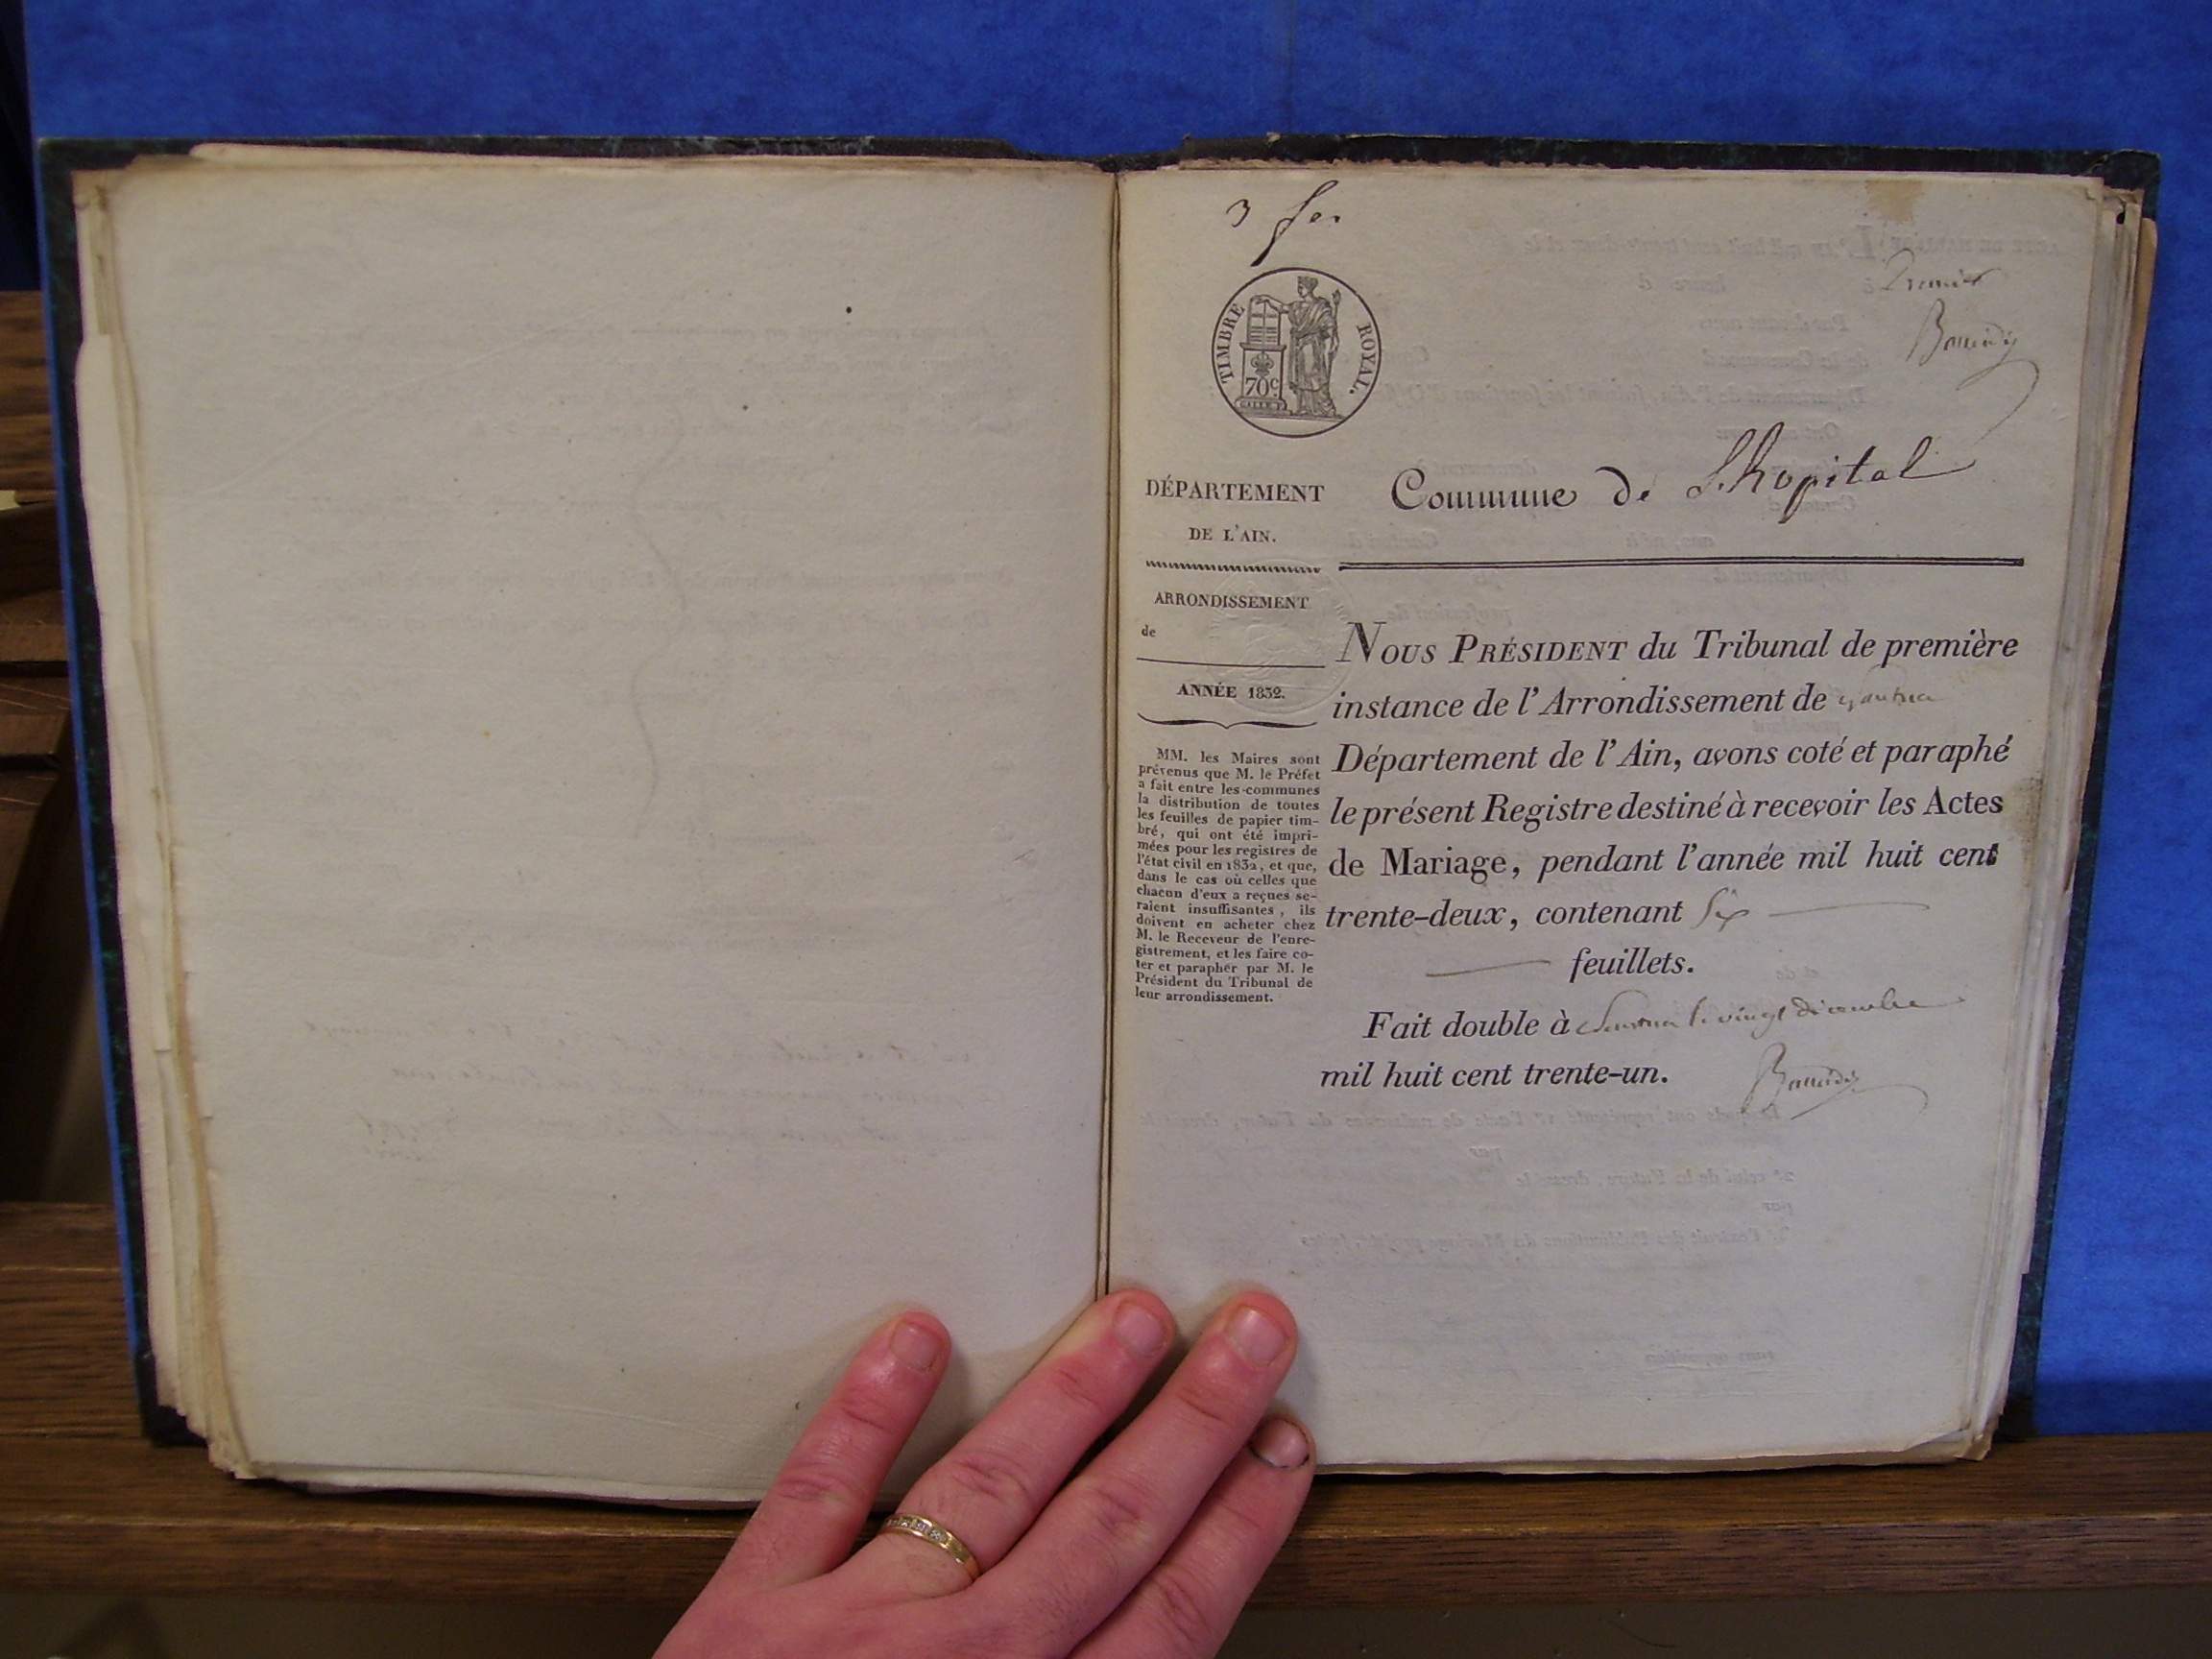 3 f
Premier
TIMBRE ROYAL.
70c
DÉPARTEMENT
DE L'AIN.
Commune de Lhopital
ARRONDISSEMENT
de
ANNÉE 1832.
MM. les Maires sont
prévenus que M. le Préfet
a fait entre les communes
la distribution de toutes
les feuilles de papier tim-
bré, qui ont été impri-
mées pour les registres de
l'état civil en 1832, et que,
dans le cas où celles que
chacun d'eux a reçues se-
raient insuffisantes, ils
doivent en acheter chez
M. le Receveur de l'enre-
gistrement, et les faire co-
ter et parapher par M. le
Président du Tribunal de
leur arrondissement.
NOUS PRÉSIDENT du Tribunal de première
instance de l'Arrondissement de Nantua
Département de l'Ain, avons coté et paraphé
le présent Registre destiné à recevoir les Actes
de Mariage, pendant l'année mil huit cent
trente-deux, contenant Six
feuillets.
Fait double à Nantua le vingt décembre
mil huit cent trente-un.